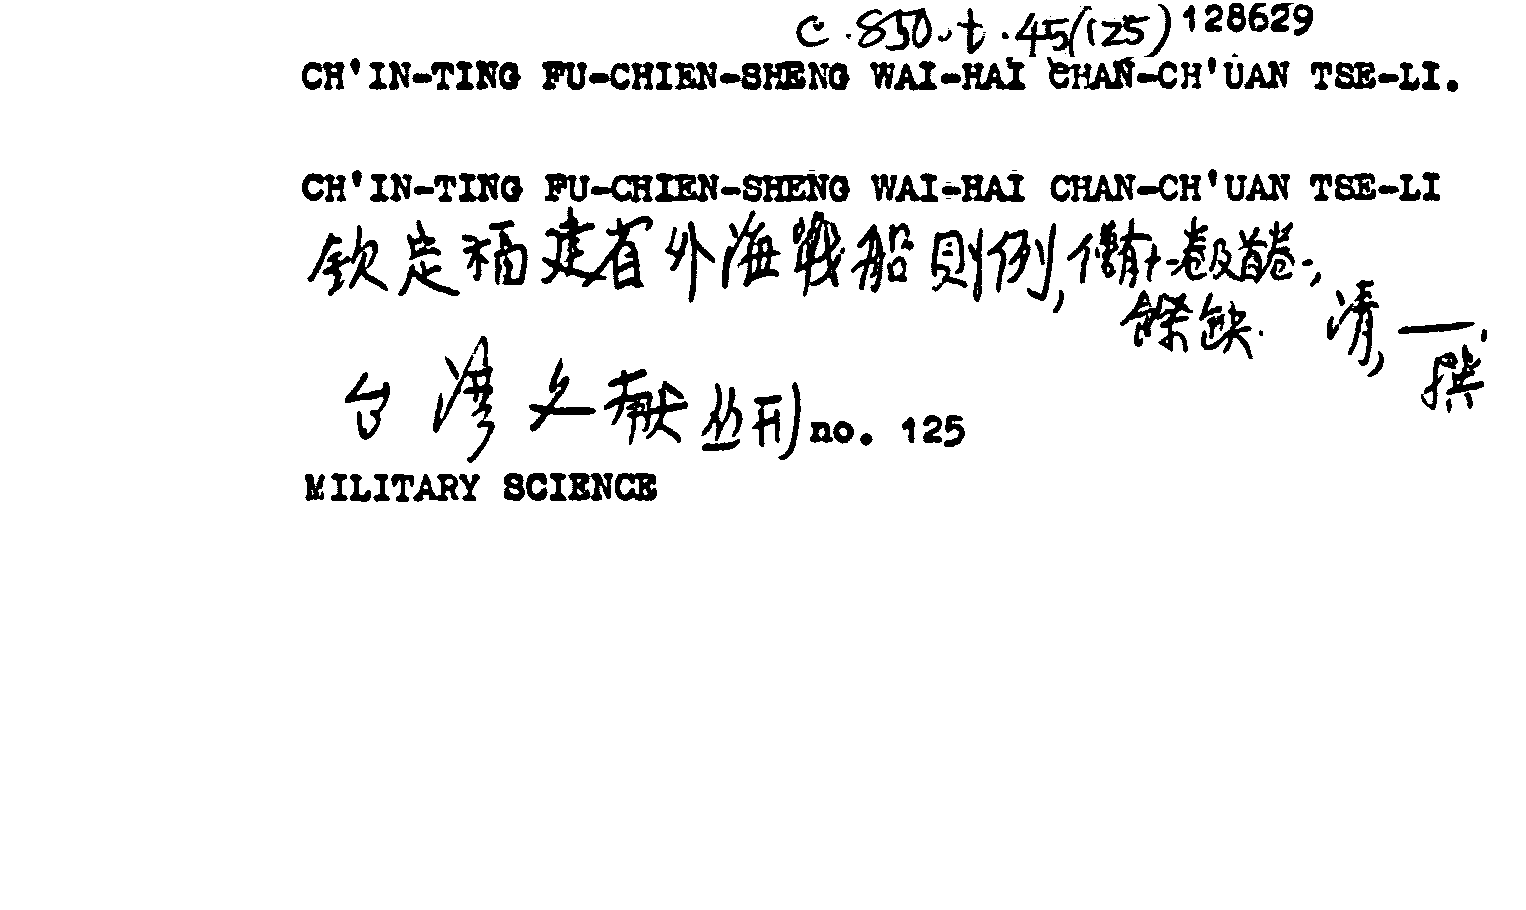 c.850.t.45(125) 128629
CH'IN-TING FU-CHIEN-SHENG WAI-HAI CHAN-CH'UAN TSE-LI.
CH'IN-TING FU-CHIEN-SHENG WAI-HAI CHAN-CH'UAN TSE-LI
欽定福建省外海戰船則例, 僅存十一卷及首卷一,
餘缺. 清, 一
撰
台湾文献丛刊 no. 125
MILITARY SCIENCE